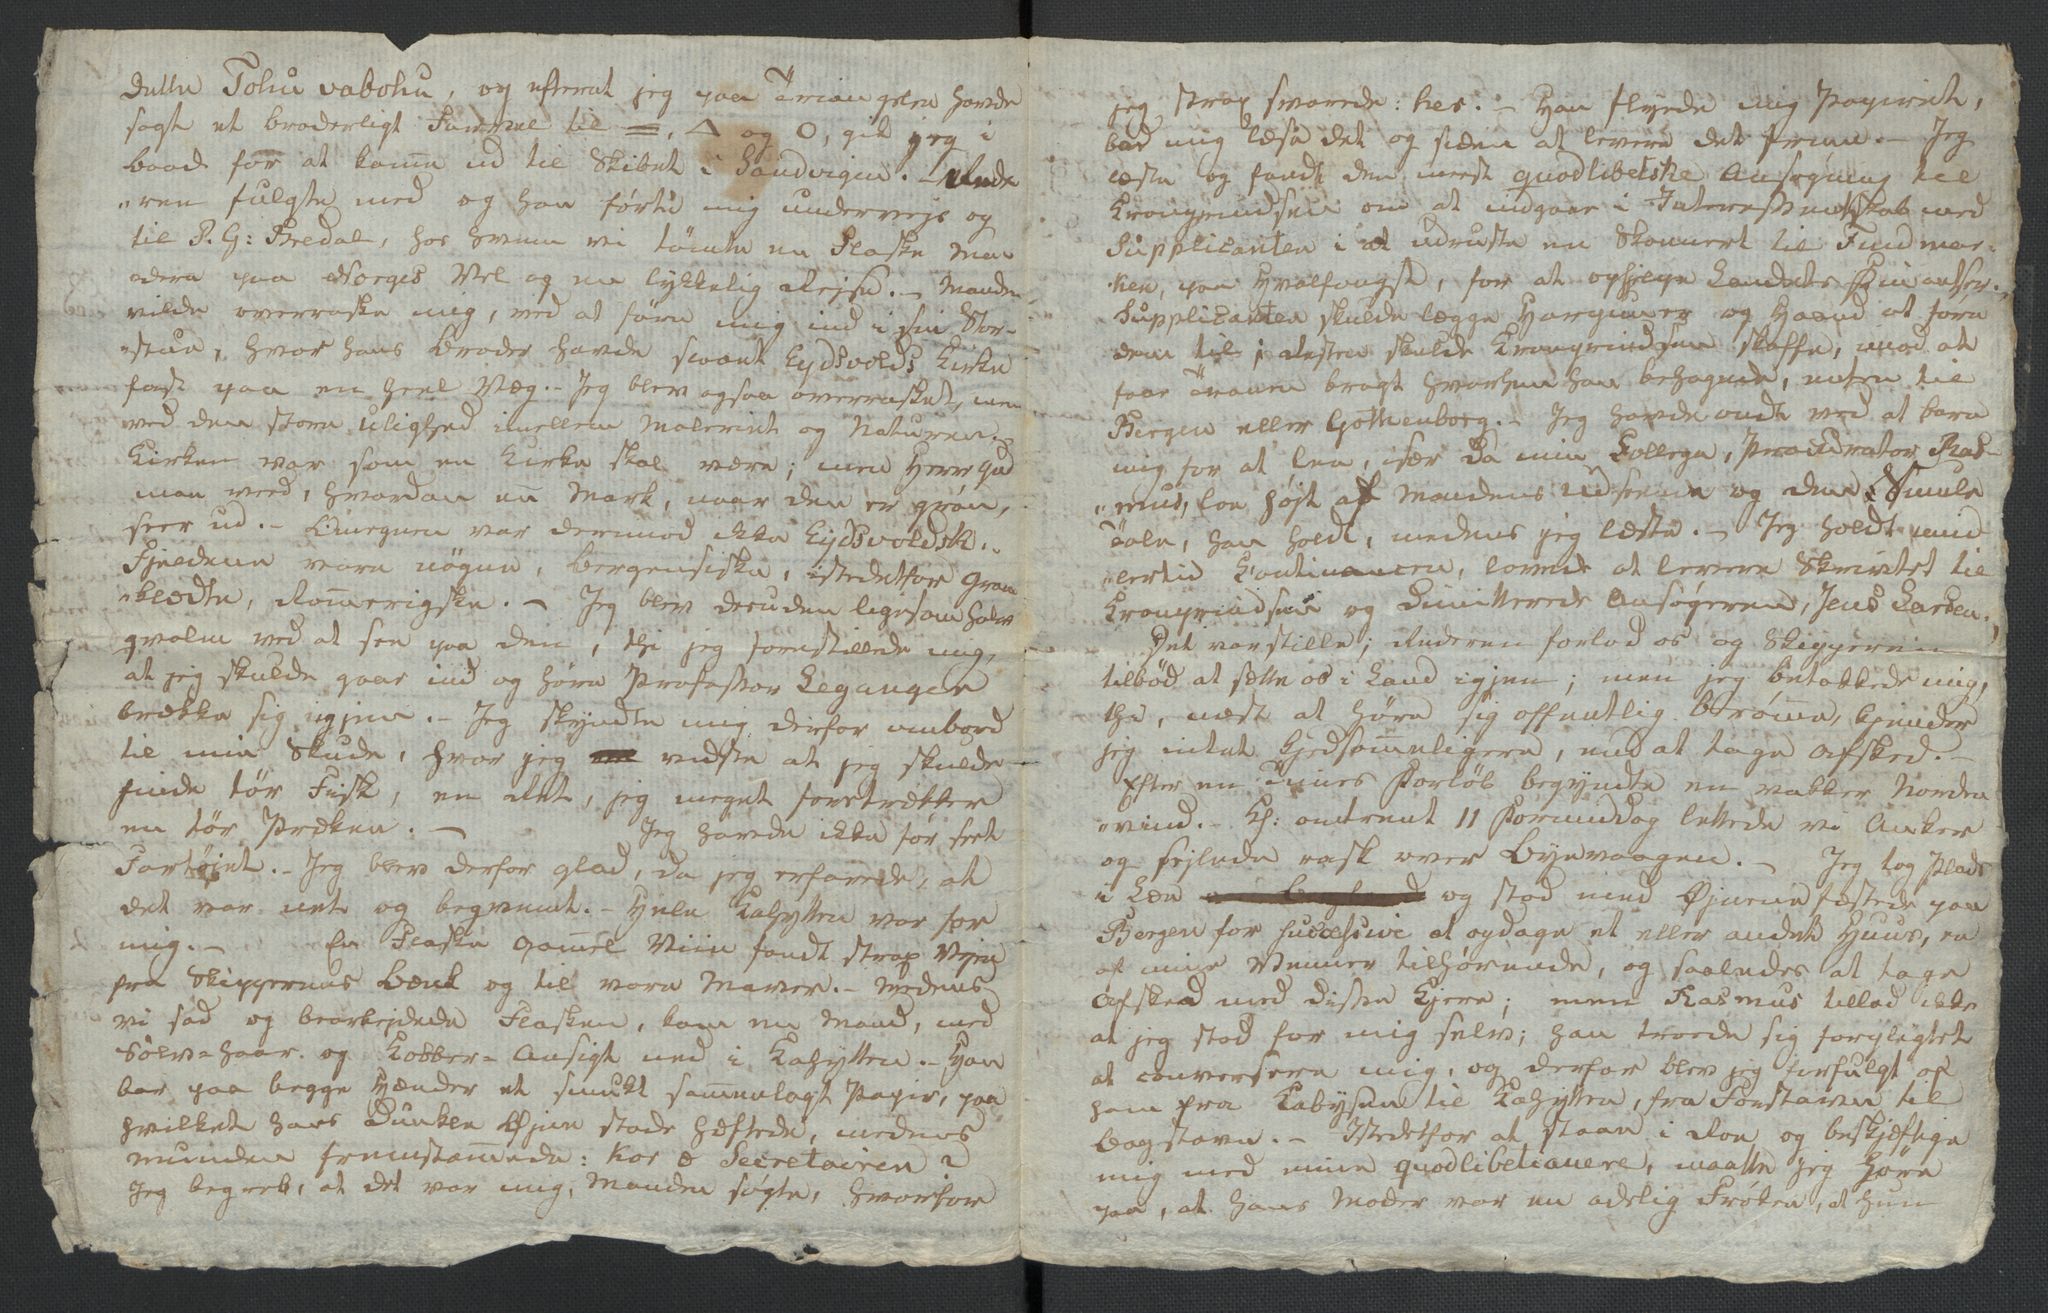 dette Tohu vabohu, og efterat jeg paa Triangelen havde
sagt et broderligt Farvel til =, Δ og O, gik jeg i
baad for at komme ud til Skibet i Sandvigen. – Rede
„ren fulgte med og han førte mig undervejs og
til P. G: Bredal, hos hvem vi tømte en Flaske Ma
„dera paa Norges Vel og en lykkelig Rejse. – Manden
vilde overraske mig, ved at føre mig ind i sin Stor-
„stue, hvor hans Broder havde svært Eydsvolds Kirke
fast paa en heel Væg. – Jeg blev ogsaa overrasket, men
ved den store Ulighed imellem Maleriet og Naturen. –
Kirken var som en Kirke skal være; men Herre Gud
man veed, hvordan en Mark, naar den er grøn,
seer ud. – Omegnen var derimod ikke Eydsvoldsk. –
Fjeldene vare nøgne, bergensiske, istedetfor Gran
„klædte, Romerigske. – Jeg blev desuden ligesom halv
qvalm ved at see paa den, thi jeg forestillede mig,
at jeg skulde gaae ind og høre Professor Leganger
brække sig igjen. – Jeg skyndte mig derfor ombord
til min Skude, hvor jeg vidste at jeg skulde
finde tør Fisk, en Ret, jeg meget foretrækker
en tør Præken. – Jeg havde ikke før seet
Fartøiet. – Jeg blev derfor glad, da jeg erfarede, at
det var net og beqvemt. – Hele Kahytten var for
mig. – En Flaske gammel Viin fandt strax Vejen
fra Skippernes Bænk og til vore Maver. – Medens
vi sad og bearbejdede Flasken, kom en Mand, med
Sølv-haar og Kobber-Ansigt ned i Kahytten. – Han
bar paa begge Hænder et smukt sammenlagt Papir, paa
hvilket hans dunkle Øjne stode hæftede, medens
munden fremstammede: Kor e Secretairen?
Jeg begreb, at det var mig, Manden søgte, hvorfor
jeg strax svarede: her. – Han flyede mig Papiret,
bad mig læse det og siden at levere det frem. – Jeg
læste og fandt den meest quodlibetske Ansøgning til
Kronprindsen om at indgaae i Interessentskab med
Supplicanten i at udruste en Skonnert til Findmar-
ken, paa Hvalfangst, for at ophjelpe Landets Finantser. –
Supplicanten skulde lægge Harpuner og Haand at føre
dem til; Resten skulde Kronprindsen skaffe, mod at
faae Tranen bragt hvorhen han behagede, enten til
Bergen eller Gothenborg. – Jeg havde ondt ved at bare
mig for at lee, især da min Collega, Procurator Ras-
„mus, loe højt af Mandens Udseende og den Smule
Tale, han holdt, medens jeg læste. – Jeg holdt imid
„lertid Contenancen, lovede at levere Skrivtet til
Kronprindsen og dimitterede Ansøgeren, Jens Larsen. –
Det var stille; Rederen forlod os og Skipperen
tilbød at sætte os i Land igjen; men jeg betakkede mig,
thi, næst at høre sig offentlig berømme, kjender
jeg intet kjedsommeligere, end at tage Afsked. –
Efter en Times Forløb begyndte en vakker Norden
„vind. – Kl: omtrent 11 Formiddag lettede vi Anker
og sejlede rask over Byevaagen. – Jeg tog Plads
i Læe og stod med Øjnene fæstede paa
Bergen for successive at opdage et eller andet Huus, en
af mine Venner tilhørende, og saaledes at tage
Afsked med disse Kjere; men Rasmus tillod ikke
at jeg stod for mig selv; han troede sig forpligtet
at conversere mig, og derfor blev jeg forfulgt af
ham fra Kabysen til Kahytten, fra Forstavn til
Bagstavn. – Istedetfor at staae i Roe og beskjeftige
mig med mine quodlibetianere, maatte jeg høre
paa, at hans Moder var en adelig Frøken, at hun